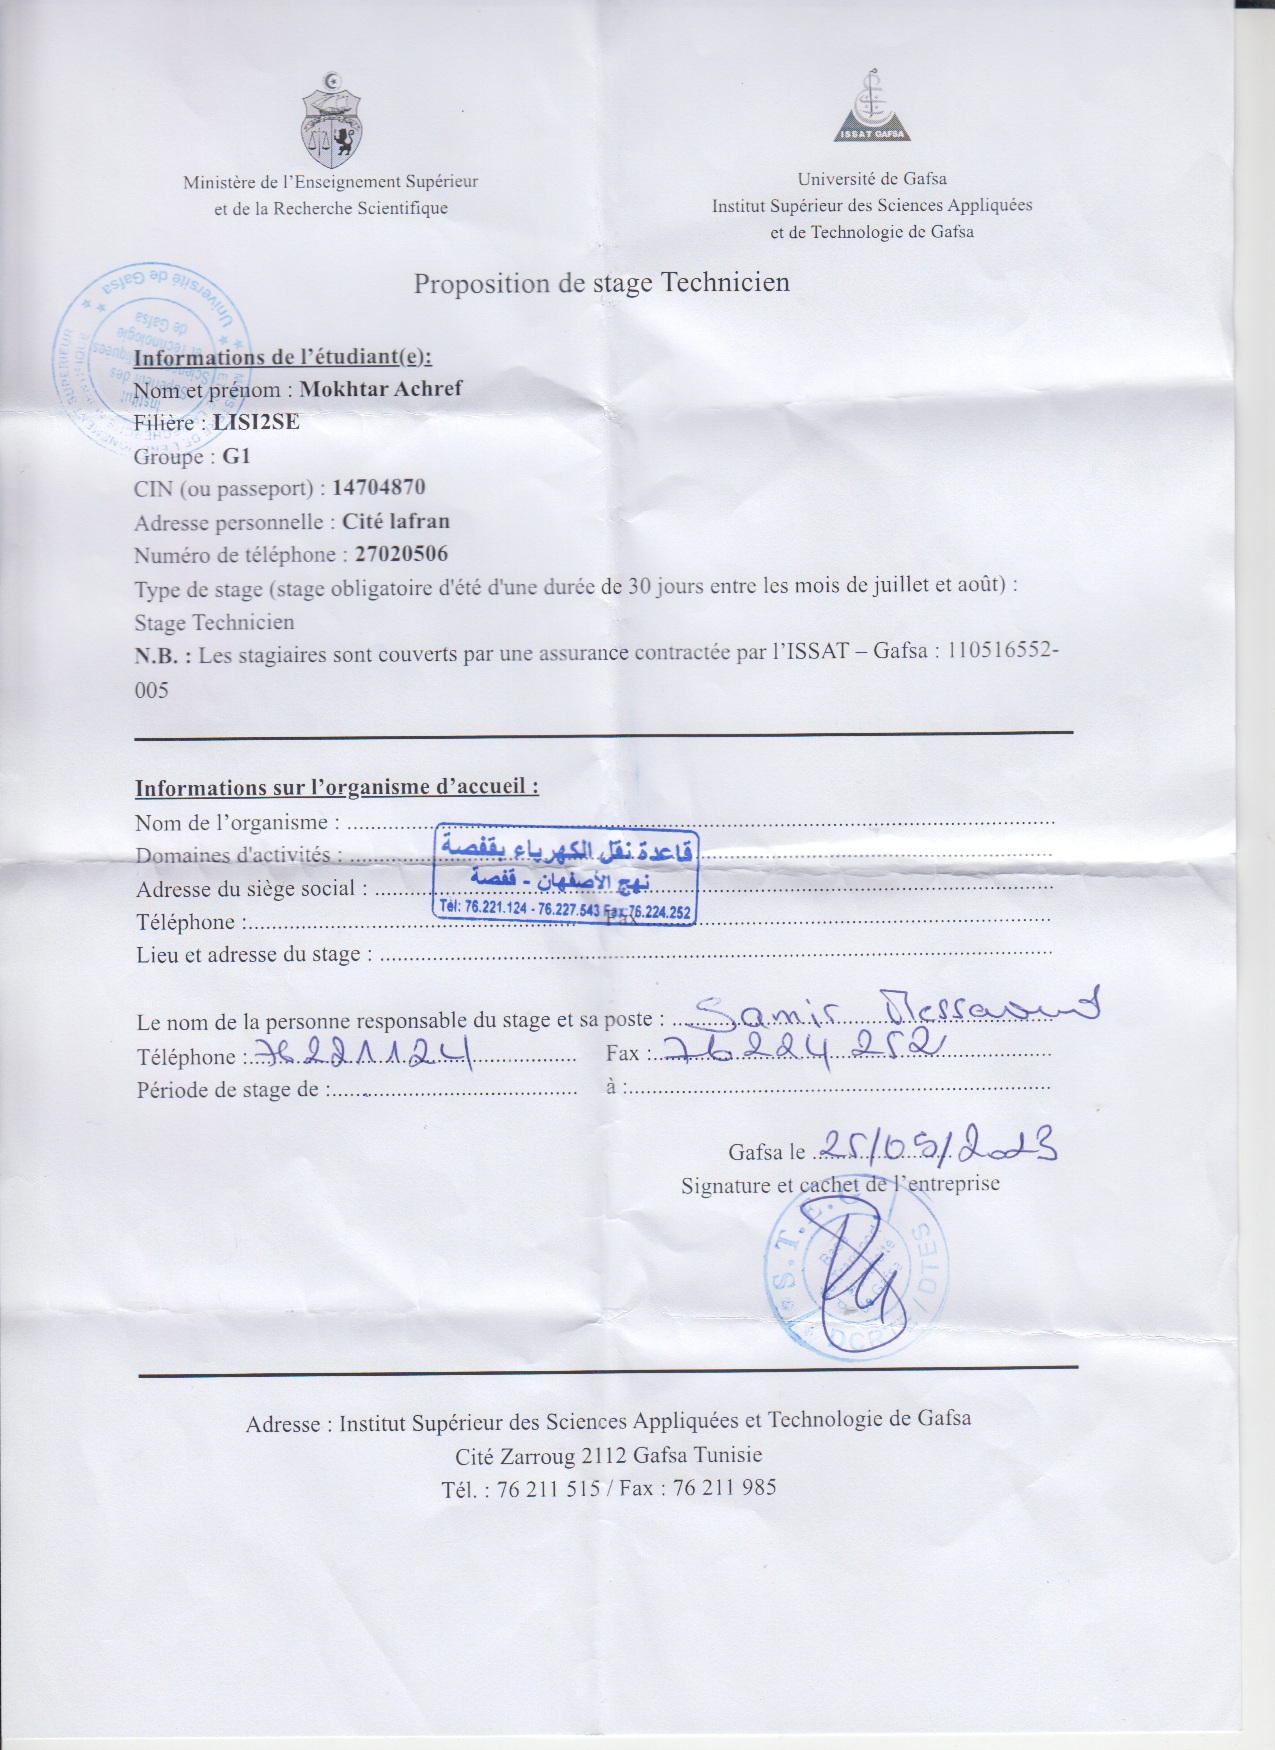 Ministère de l'Enseignement Supérieur
et de la Recherche Scientifique
ISSAT GAFSA
Université de Gafsa
Institut Supérieur des Sciences Appliquées
et de Technologie de Gafsa
Proposition de stage Technicien
Université de Gafsa
Informations de l'étudiant(e):
Nom et prénom : Mokhtar Achref
Filière : LISI2SE
Groupe : G1
CIN (ou passeport) : 14704870
Adresse personnelle : Cité lafran
Numéro de téléphone : 27020506
Type de stage (stage obligatoire d'été d'une durée de 30 jours entre les mois de juillet et août) :
Stage Technicien
N.B. : Les stagiaires sont couverts par une assurance contractée par l'ISSAT – Gafsa : 110516552-
005
Informations sur l'organisme d'accueil :
Nom de l'organisme :
Domaines d'activités :
قاعدة نقل الكهرباء بقفصة
Adresse du siège social :
نهج الأصفهان - قفصة
Tél: 76.221.124 - 76.227.543 Fax 76.224.252
Téléphone : Fax
Lieu et adresse du stage :
Le nom de la personne responsable du stage et sa poste : Samir Messaoud
Téléphone : 76221124 Fax : 76224 252
Période de stage de : à :
Gafsa le 25/05/2023
Signature et cachet de l'entreprise
S.T.E.G
DTES
Adresse : Institut Supérieur des Sciences Appliquées et Technologie de Gafsa
Cité Zarroug 2112 Gafsa Tunisie
Tél. : 76 211 515 / Fax : 76 211 985